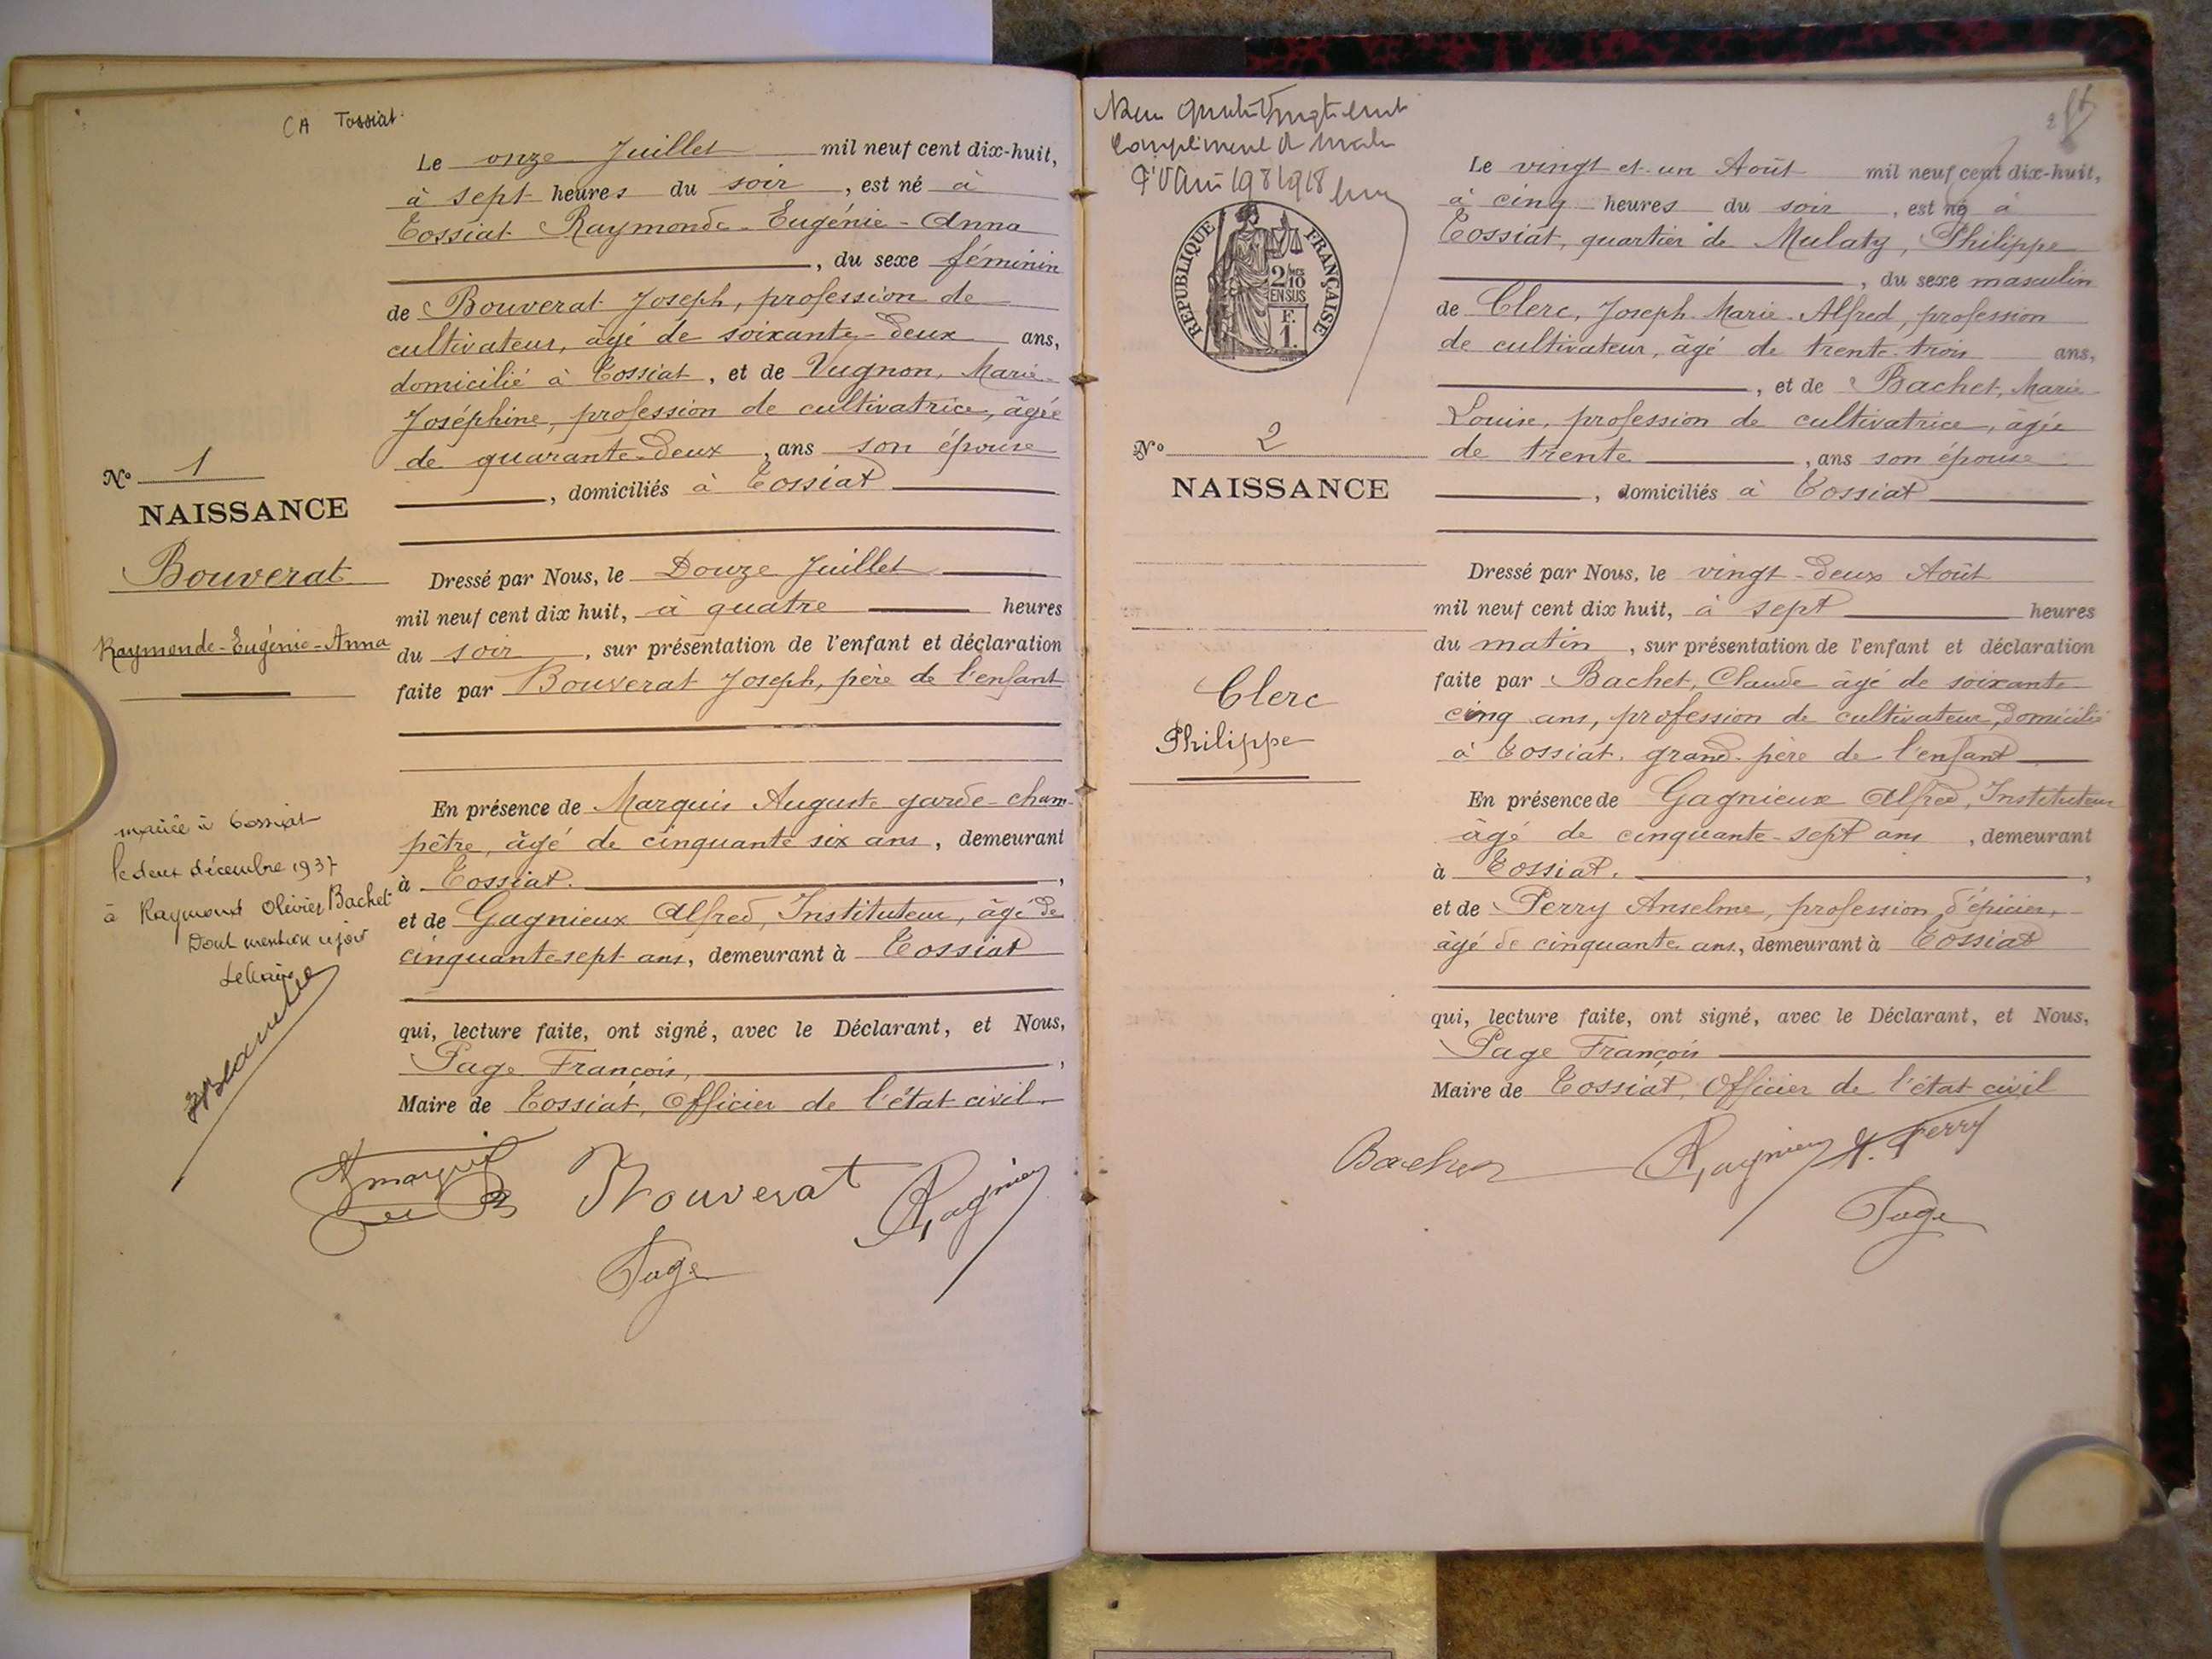 CA Tossiat.
Le onze Juillet mil neuf cent dix-huit,
à sept heures du soir, est né à
Tossiat Raymonde-Eugénie-Anna
, du sexe féminin
de Bouverat Joseph, profession de
cultivateur, âgé de soixante-deux ans,
domicilié à Tossiat, et de Vugnon, Marie-
Joséphine, profession de cultivatrice, âgée
de quarante-deux, ans son épouse
, domiciliés à Tossiat
N° 1
NAISSANCE
Bouverat
Raymonde-Eugénie-Anna
Dressé par Nous, le Douze Juillet
mil neuf cent dix huit, à quatre heures
du soir, sur présentation de l'enfant et déclaration
faite par Bouverat Joseph, père de l'enfant
En présence de Marquis Auguste garde-cham-
pêtre, âgé de cinquante six ans, demeurant
à Tossiat.
et de Gagnieux Alfred, Instituteur, âgé de
cinquante-sept ans, demeurant à Tossiat
mariée à Tossiat
le deux décembre 1937
à Raymond Olivier Bachet
Dont mention
Le Maire
qui, lecture faite, ont signé, avec le Déclarant, et Nous,
Page François,
Maire de Tossiat, Officier de l'état civil.
Marquis Bouverat Gagnieux
Page
REPUBLIQUE FRANÇAISE
2/10 EN SUS
F. 1.
N° 2
NAISSANCE
Clerc
Philippe
Le vingt et un Août mil neuf cent dix-huit,
à cinq heures du soir, est né à
Tossiat, quartier de Mulaty, Philippe
, du sexe masculin
de Clerc, Joseph-Marie-Alfred, profession
de cultivateur, âgé de trente-trois ans,
, et de Bachet, Marie-
Louise, profession de cultivatrice, âgée
de trente, ans son épouse
, domiciliés à Tossiat
Dressé par Nous, le vingt-deux Août
mil neuf cent dix huit, à sept heures
du matin, sur présentation de l'enfant et déclaration
faite par Bachet, Claude âgé de soixante-
cinq ans, profession de cultivateur, domicilié
à Tossiat, grand-père de l'enfant
En présence de Gagnieux Alfred, Instituteur
âgé de cinquante-sept ans, demeurant
à Tossiat,
et de Perry Anselme, profession d'épicier,
âgé de cinquante ans, demeurant à Tossiat
qui, lecture faite, ont signé, avec le Déclarant, et Nous,
Page François
Maire de Tossiat, Officier de l'état civil
Bachet Gagnieux A. Perry
Page